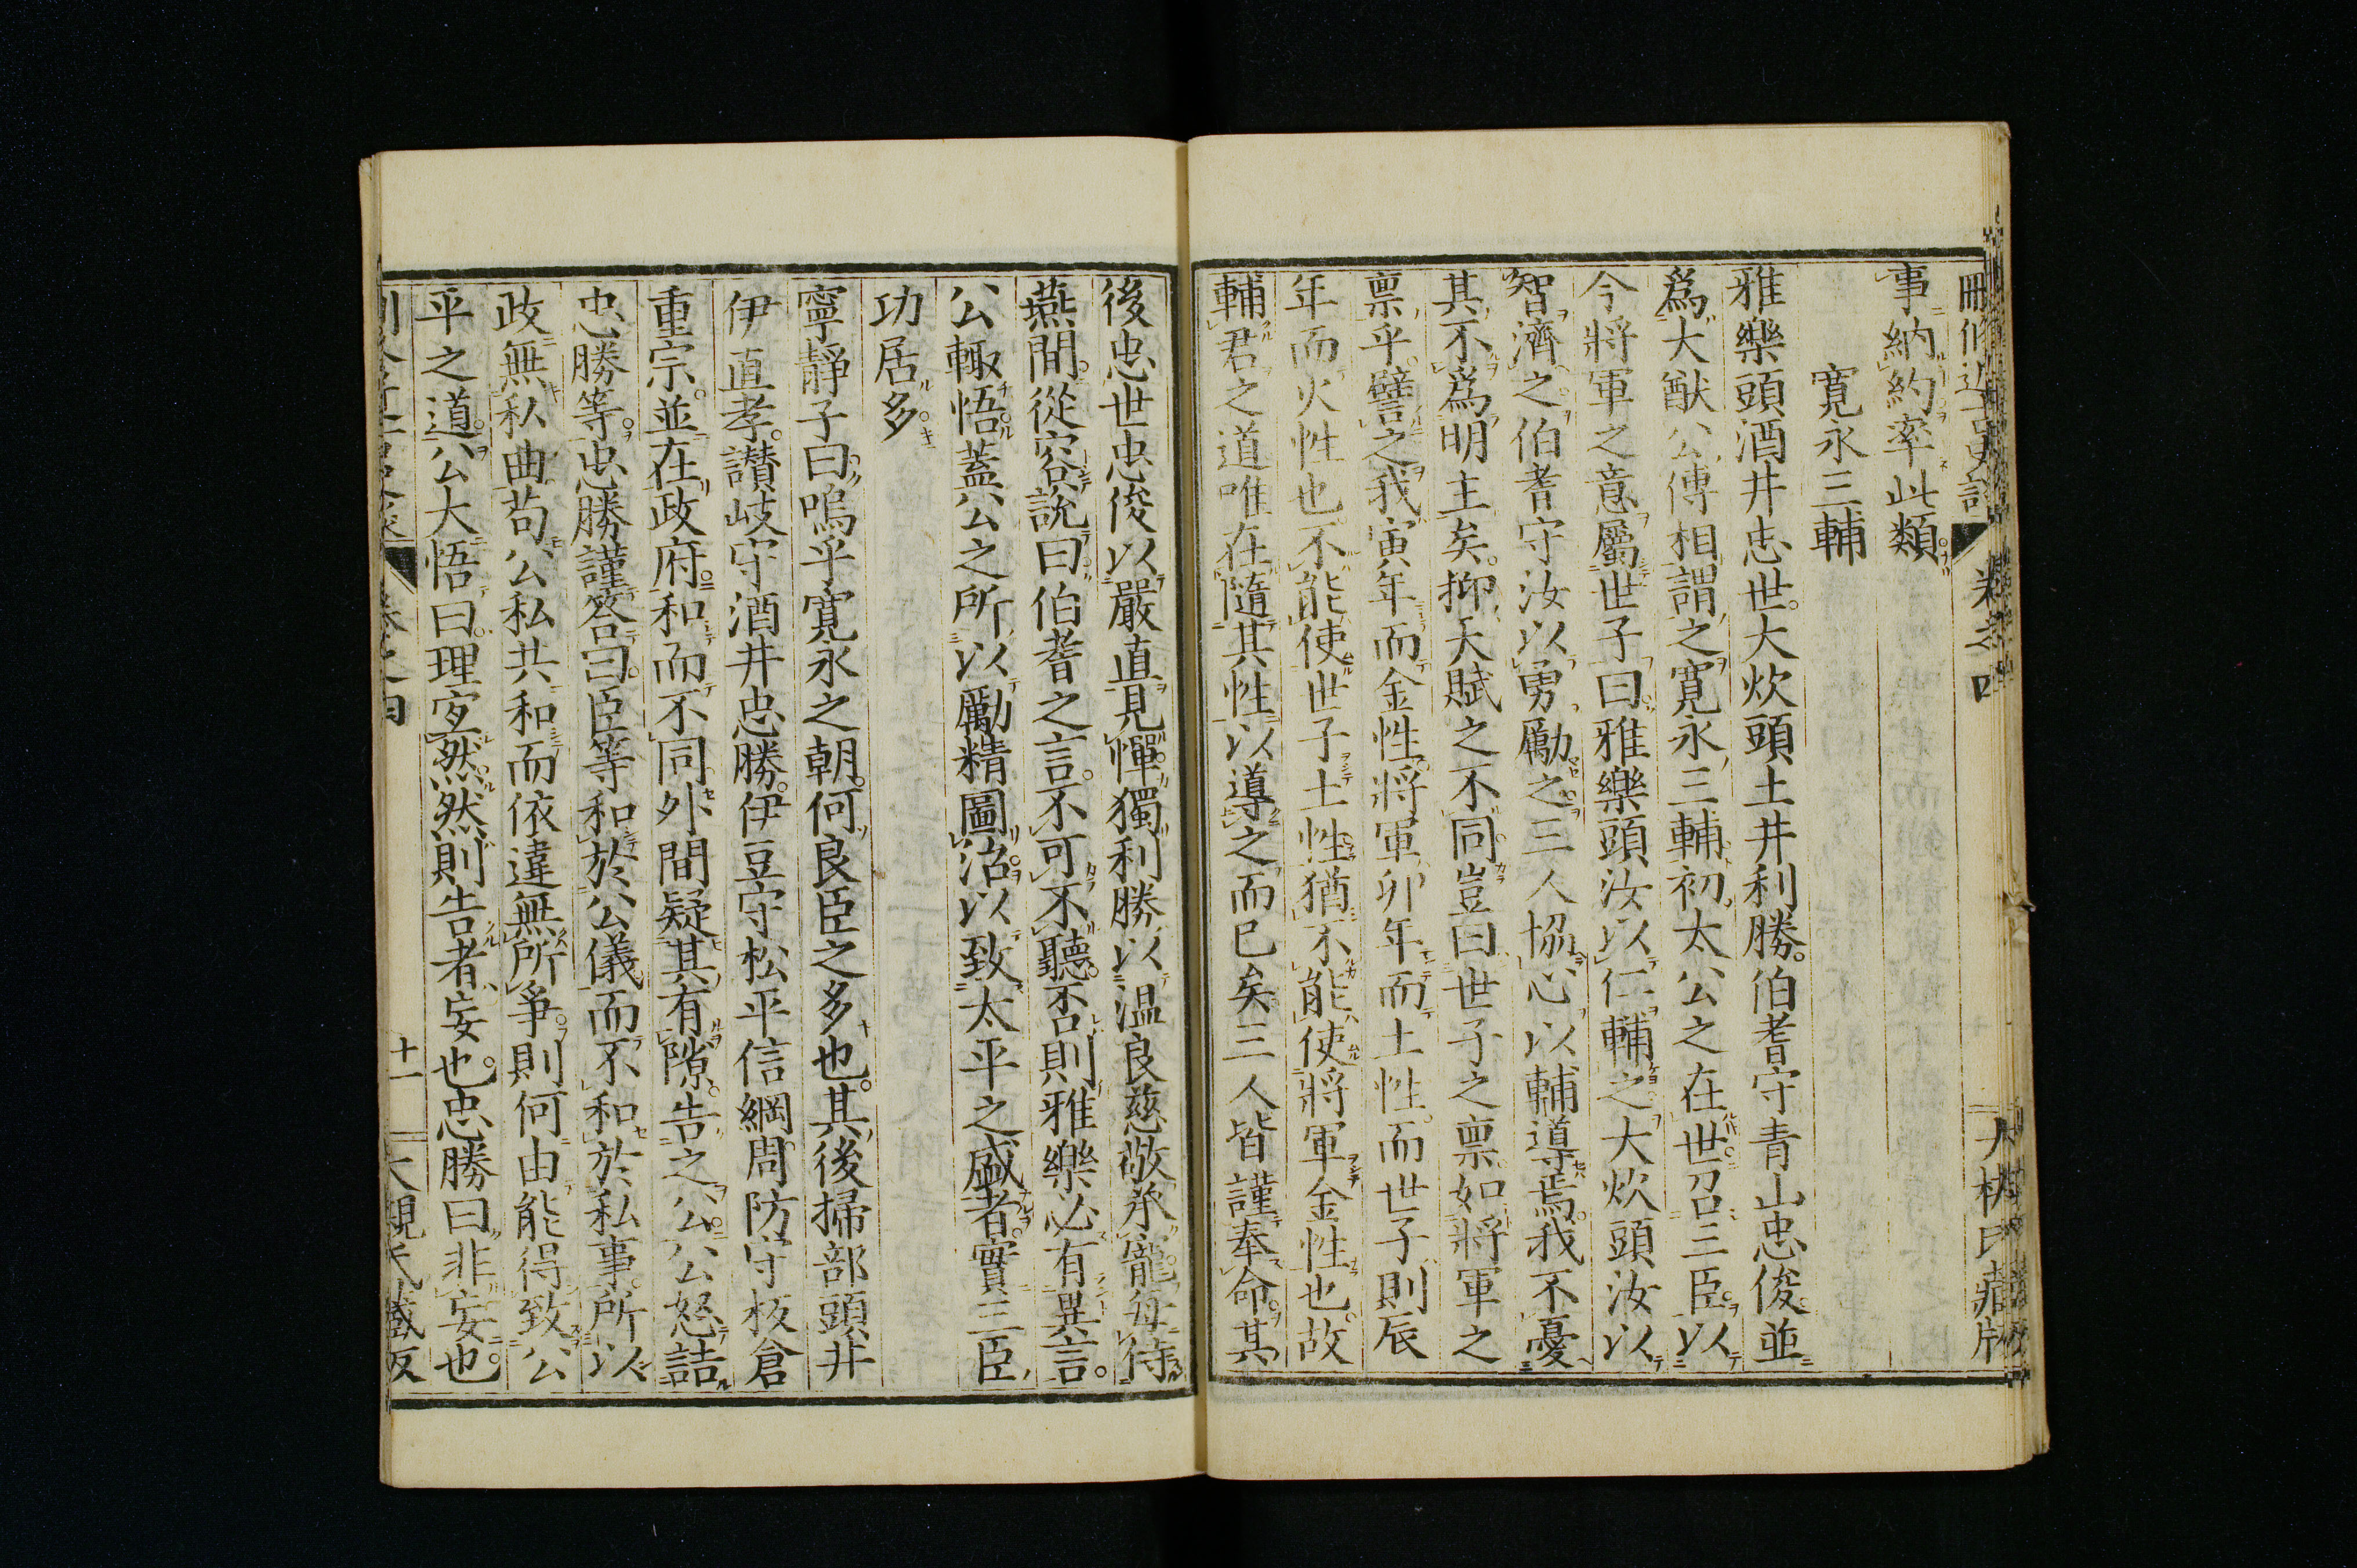 事納約率此類
寬永三輔
雅樂頭酒井忠世。大炊頭土井利勝。伯耆守青山忠俊。並
爲大猷公傅相。謂之寬永三輔。初太公之在世。召三臣。以
今將軍之意屬世子曰。雅樂頭汝以仁輔之。大炊頭汝以
智濟之。伯耆守汝以勇勵之。三人協心以輔導焉。我不憂
其不爲明主矣。抑天賦之不同。豈曰世子之禀如將軍之
禀乎。譬之我寅年而金性。將軍卯年而土性。而世子則辰
年而火性也。不能使世子土性。猶不能使將軍金性也。故
輔君之道唯在隨其性以導之而已矣。三人皆謹奉命。其
後忠世忠俊以嚴直見憚。獨利勝以温良慈敬承寵。每侍
燕間。從容說曰。伯耆之言。不可不聽。否則雅樂必有異言。
公輙悟。蓋公之所以勵精圖治。以致太平之盛者。實三臣
功居多
寧靜子曰。嗚乎寬永之朝。何良臣之多也。其後掃部頭井
伊直孝。讃岐守酒井忠勝。伊豆守松平信綱。周防守板倉
重宗。並在政府。和而不同。外間疑其有隙。告之公。公怒詰
忠勝等。忠勝謹答曰。臣等和於公儀而不和於私事。所以
政無私曲。苟公私共和而依違無所爭。則何由能得致公
平之道。公大悟曰。理宜然。然則告者妄也。忠勝曰。非妄也。
卷之四
十一